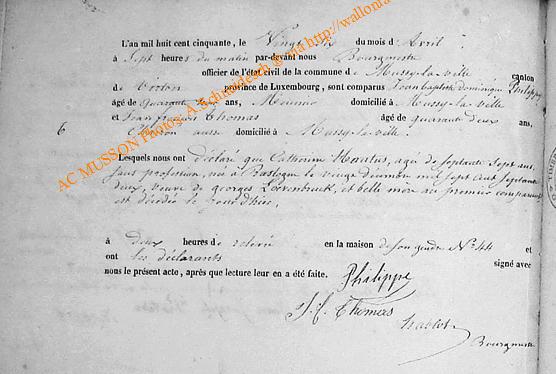 L'an mil huit cent cinquante, le Vingt six du mois d'Avril
à Sept heures du matin par-devant nous Bourgmestre
officier de l'état civil de la commune de Mussy-la-ville canton
de Virton province de Luxembourg, sont comparus Jean baptiste dominique Philippe
âgé de quarante ans, domicilié à Mussy-la-ville
et Jean françois Thomas âgé de quarante deux ans,
6 aussi domicilié à Mussy-la-ville
Lesquels nous ont déclaré que Catherine agée de septante sept ans,
sans profession, née à Bastogne le mil sept cent septante
deux, veuve de georges et belle mère au premier comparant
est décédée le jour d'hier,
à deux heures de relevée en la maison de son gendre N° 44 et
ont les déclarants signé avec
nous le présent acte, après que lecture leur en a été faite.
Philippe
J. f. Thomas
Bourgmestre
AC MUSSON Photos: A.Schmidesch @ GMA http://wallonia